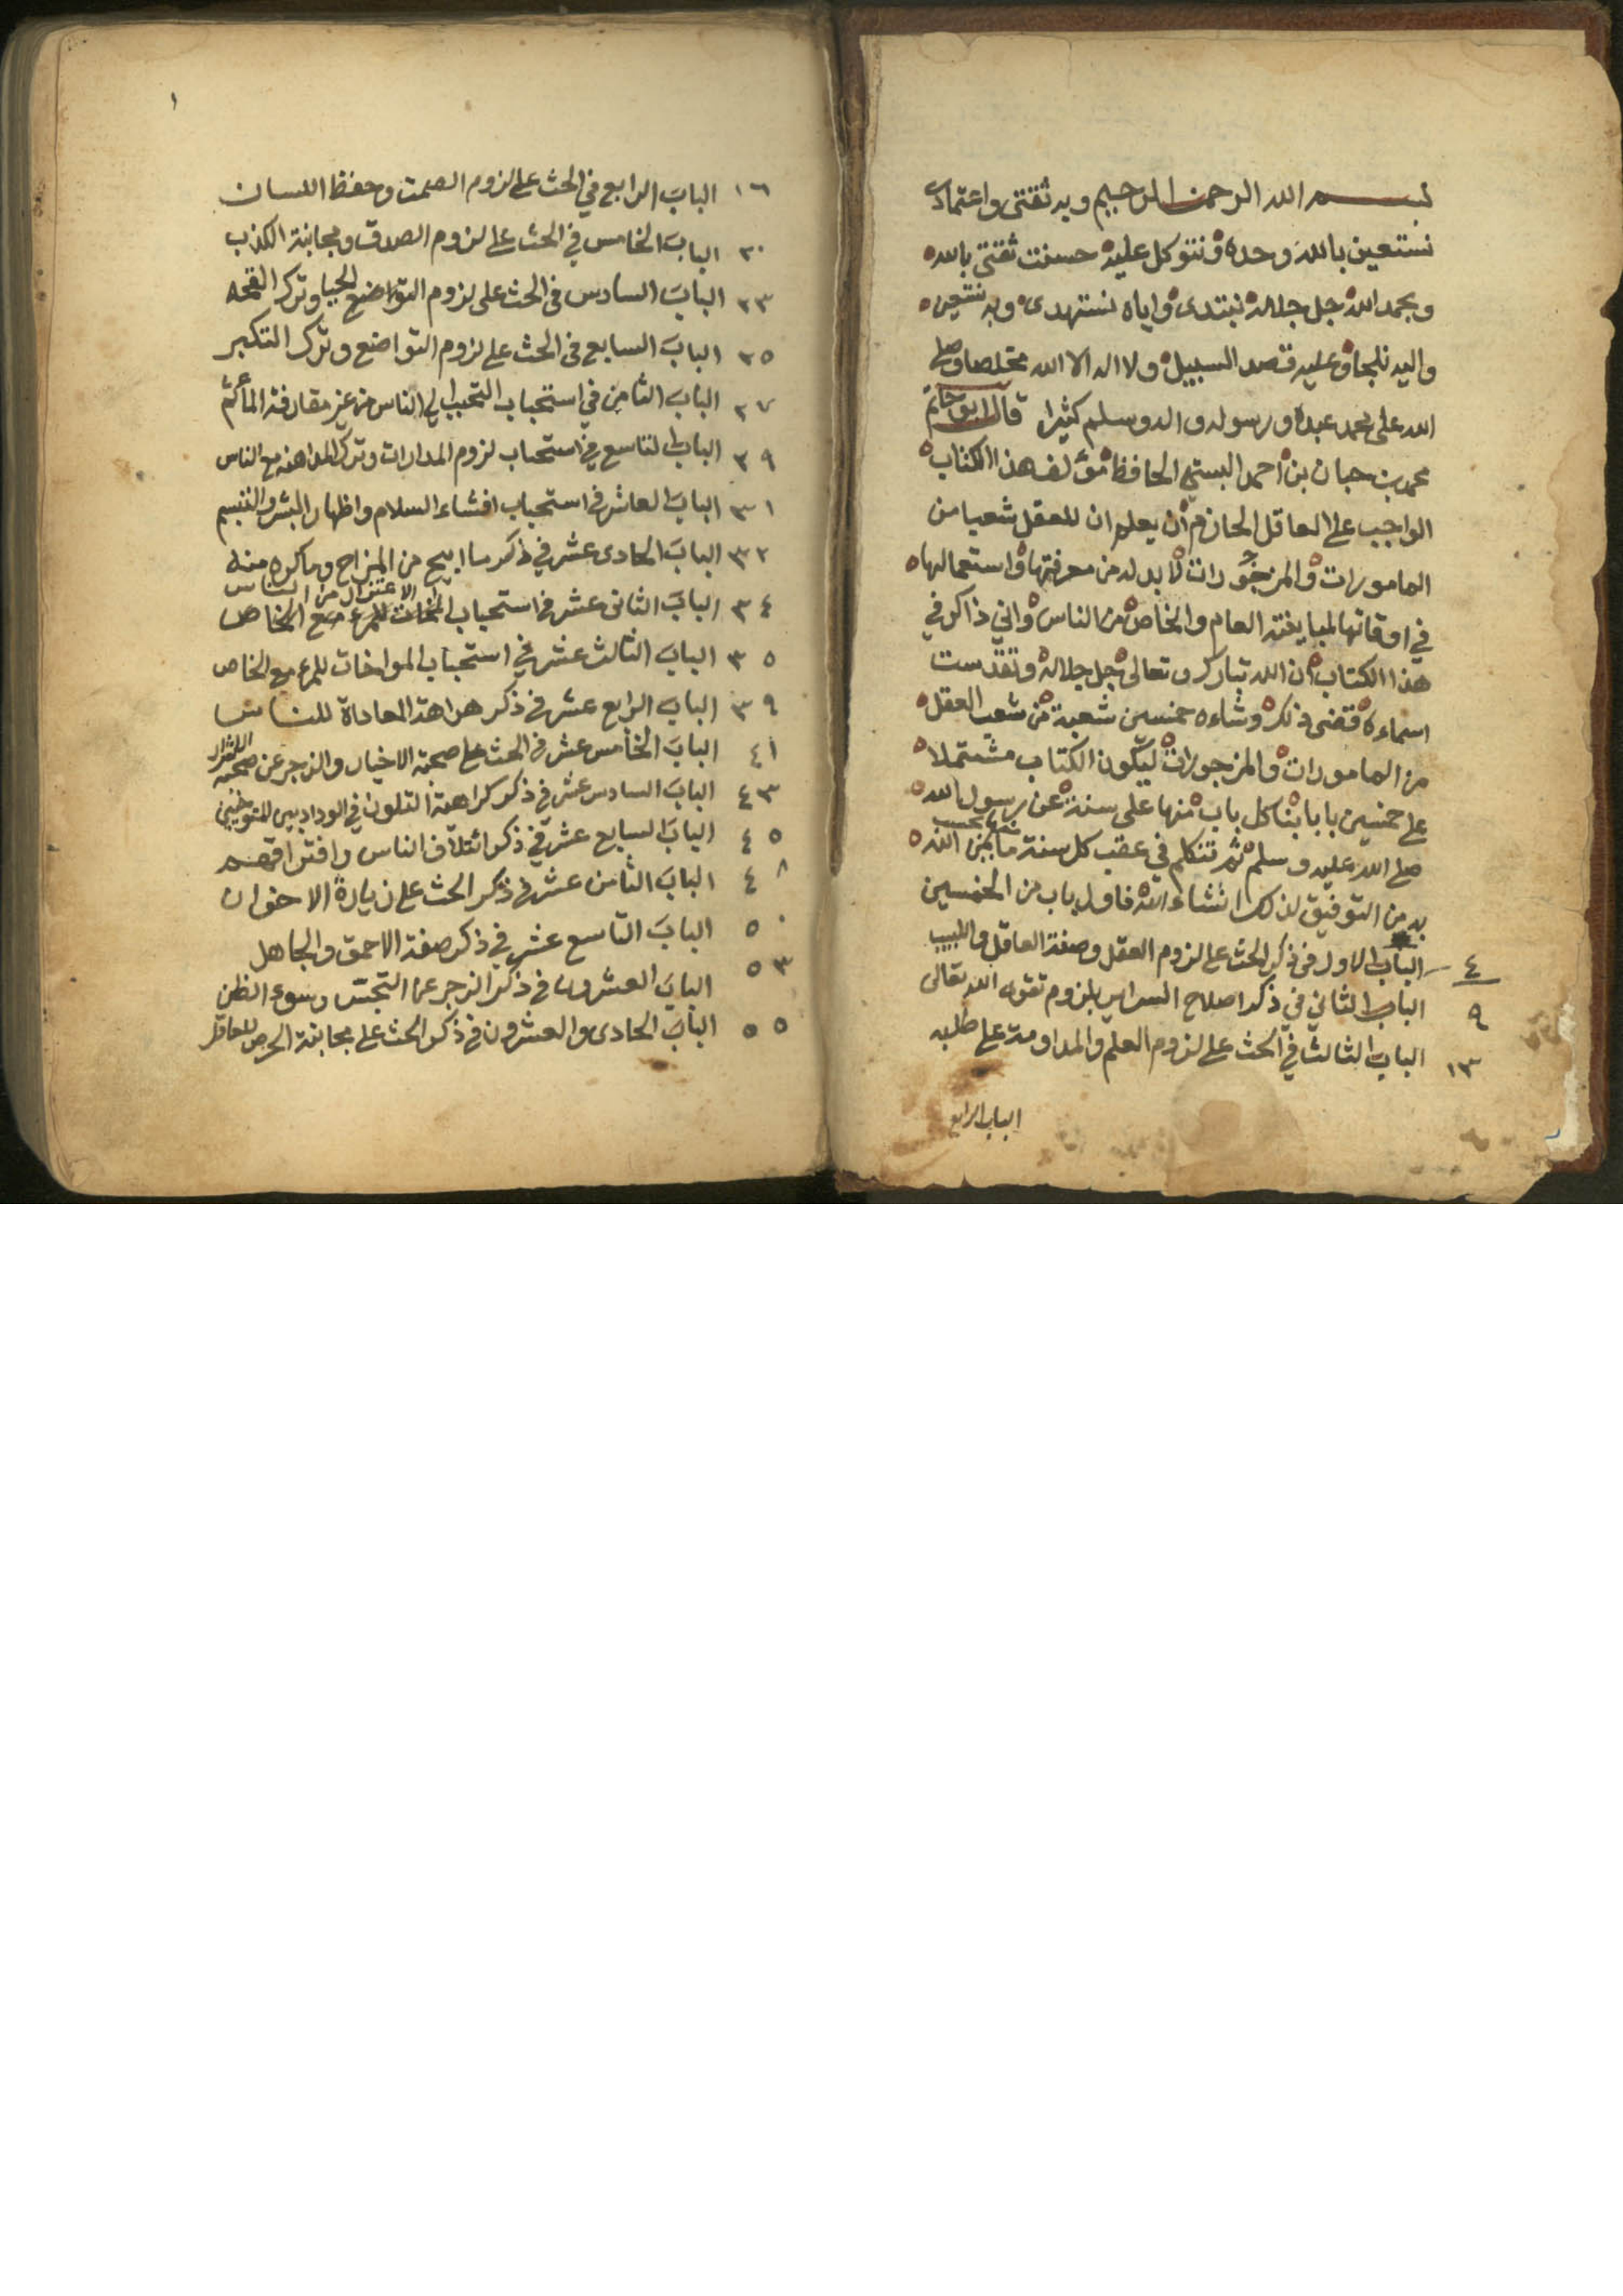 بسم الله الرحمن الرحيم وبه ثقتي واعتمادي
نستعين بالله وحده ونتوكل عليه حسنت ثقتي بالله
وبحمد الله جل جلاله نبتدى واياه نستهدى وبه نستعين
واليه نلجا وعليه قصد السبيل ولا اله الا الله مخلصا وصلى
الله على محمد عبده ورسوله واله وسلم كثيرا قال ابو حاتم
محمد بن حبان بن احمد البستي الحافظ مؤلف هذا الكتاب
الواجب على العاقل الحازم أن يعلم ان للعقل شعبا من
المامورات والمزجورات لا بد له من معرفتها واستعمالها
في اوقاتها لمباينته العام والخاص من الناس واني ذاكر في
هذا الكتاب ان الله تبارك وتعالى جل جلاله وتقدست
اسماءه قضى ذلك وشاءه خمسين شعبة من شعب العقل
من المامورات والمزجورات ليكون الكتاب مشتملا
على خمسين بابا بنا كل باب منها على سنة عن رسول الله
صلى الله عليه وسلم ثم نتكلم في عقب كل سنة منها بحسب ما يمن الله
به من التوفيق لذلك انشاء الله فاول باب من الخمسين
٤ الباب الاول في ذكر الحث على لزوم العقل وصفة العاقل واللبيب
٩ الباب الثاني في ذكر اصلاح السراير بلزوم تقوى الله تعالى
١٣ الباب الثالث في الحث على لزوم العلم والمداومة على طلبه
الباب الرابع
١
١٦ الباب الرابع في الحث على لزوم الصمت وحفظ اللسان
٢٠ الباب الخامس في الحث على لزوم الصدق ومجانبة الكذب
٢٣ الباب السادس في الحث على لزوم التواضع الحيا وترك القحه
٢٥ الباب السابع في الحث على لزوم التواضع وترك التكبر
٢٧ الباب الثامن في استحباب التحبب الى الناس من غير مقارفة المأثم
٢٩ الباب التاسع في استحباب لزوم المدارات وترك المداهنه مع الناس
٣١ الباب العاشر في استحباب افشاء السلام واظهار البشر والتبسم
٣٢ الباب الحادى عشر في ذكر ما ابيح من المزاح وما كره منه
الاعتزال من الناس
٣٤ الباب الثانى عشر في استحباب المواخات للمرء مع الخاص
٣٥ الباب الثالث عشر في استحباب المواخات للمرء مع الخاص
٣٩ الباب الرابع عشر في ذكر كراهة المعاداة للناس
٤١ الباب الخامس عشر في الحث على صحبة الاخيار والزجر عن صحبة الاشرار
٤٣ الباب السادس عشر في ذكر كراهة التلون في الوداد بين المتواخيين
٤٥ الباب السابع عشر في ذكر ائتلاف الناس وافتراقهم
٤٨ الباب الثامن عشر في ذكر الحث على زيارة الاخوان
٥٠ الباب التاسع عشر في ذكر صفة الاحمق والجاهل
٥٣ الباب العشرون في ذكر الزجر عن التجسس وسوء الظن
٥٥ الباب الحادى والعشرون في ذكر الحث على مجانبة الحرص للعاقل